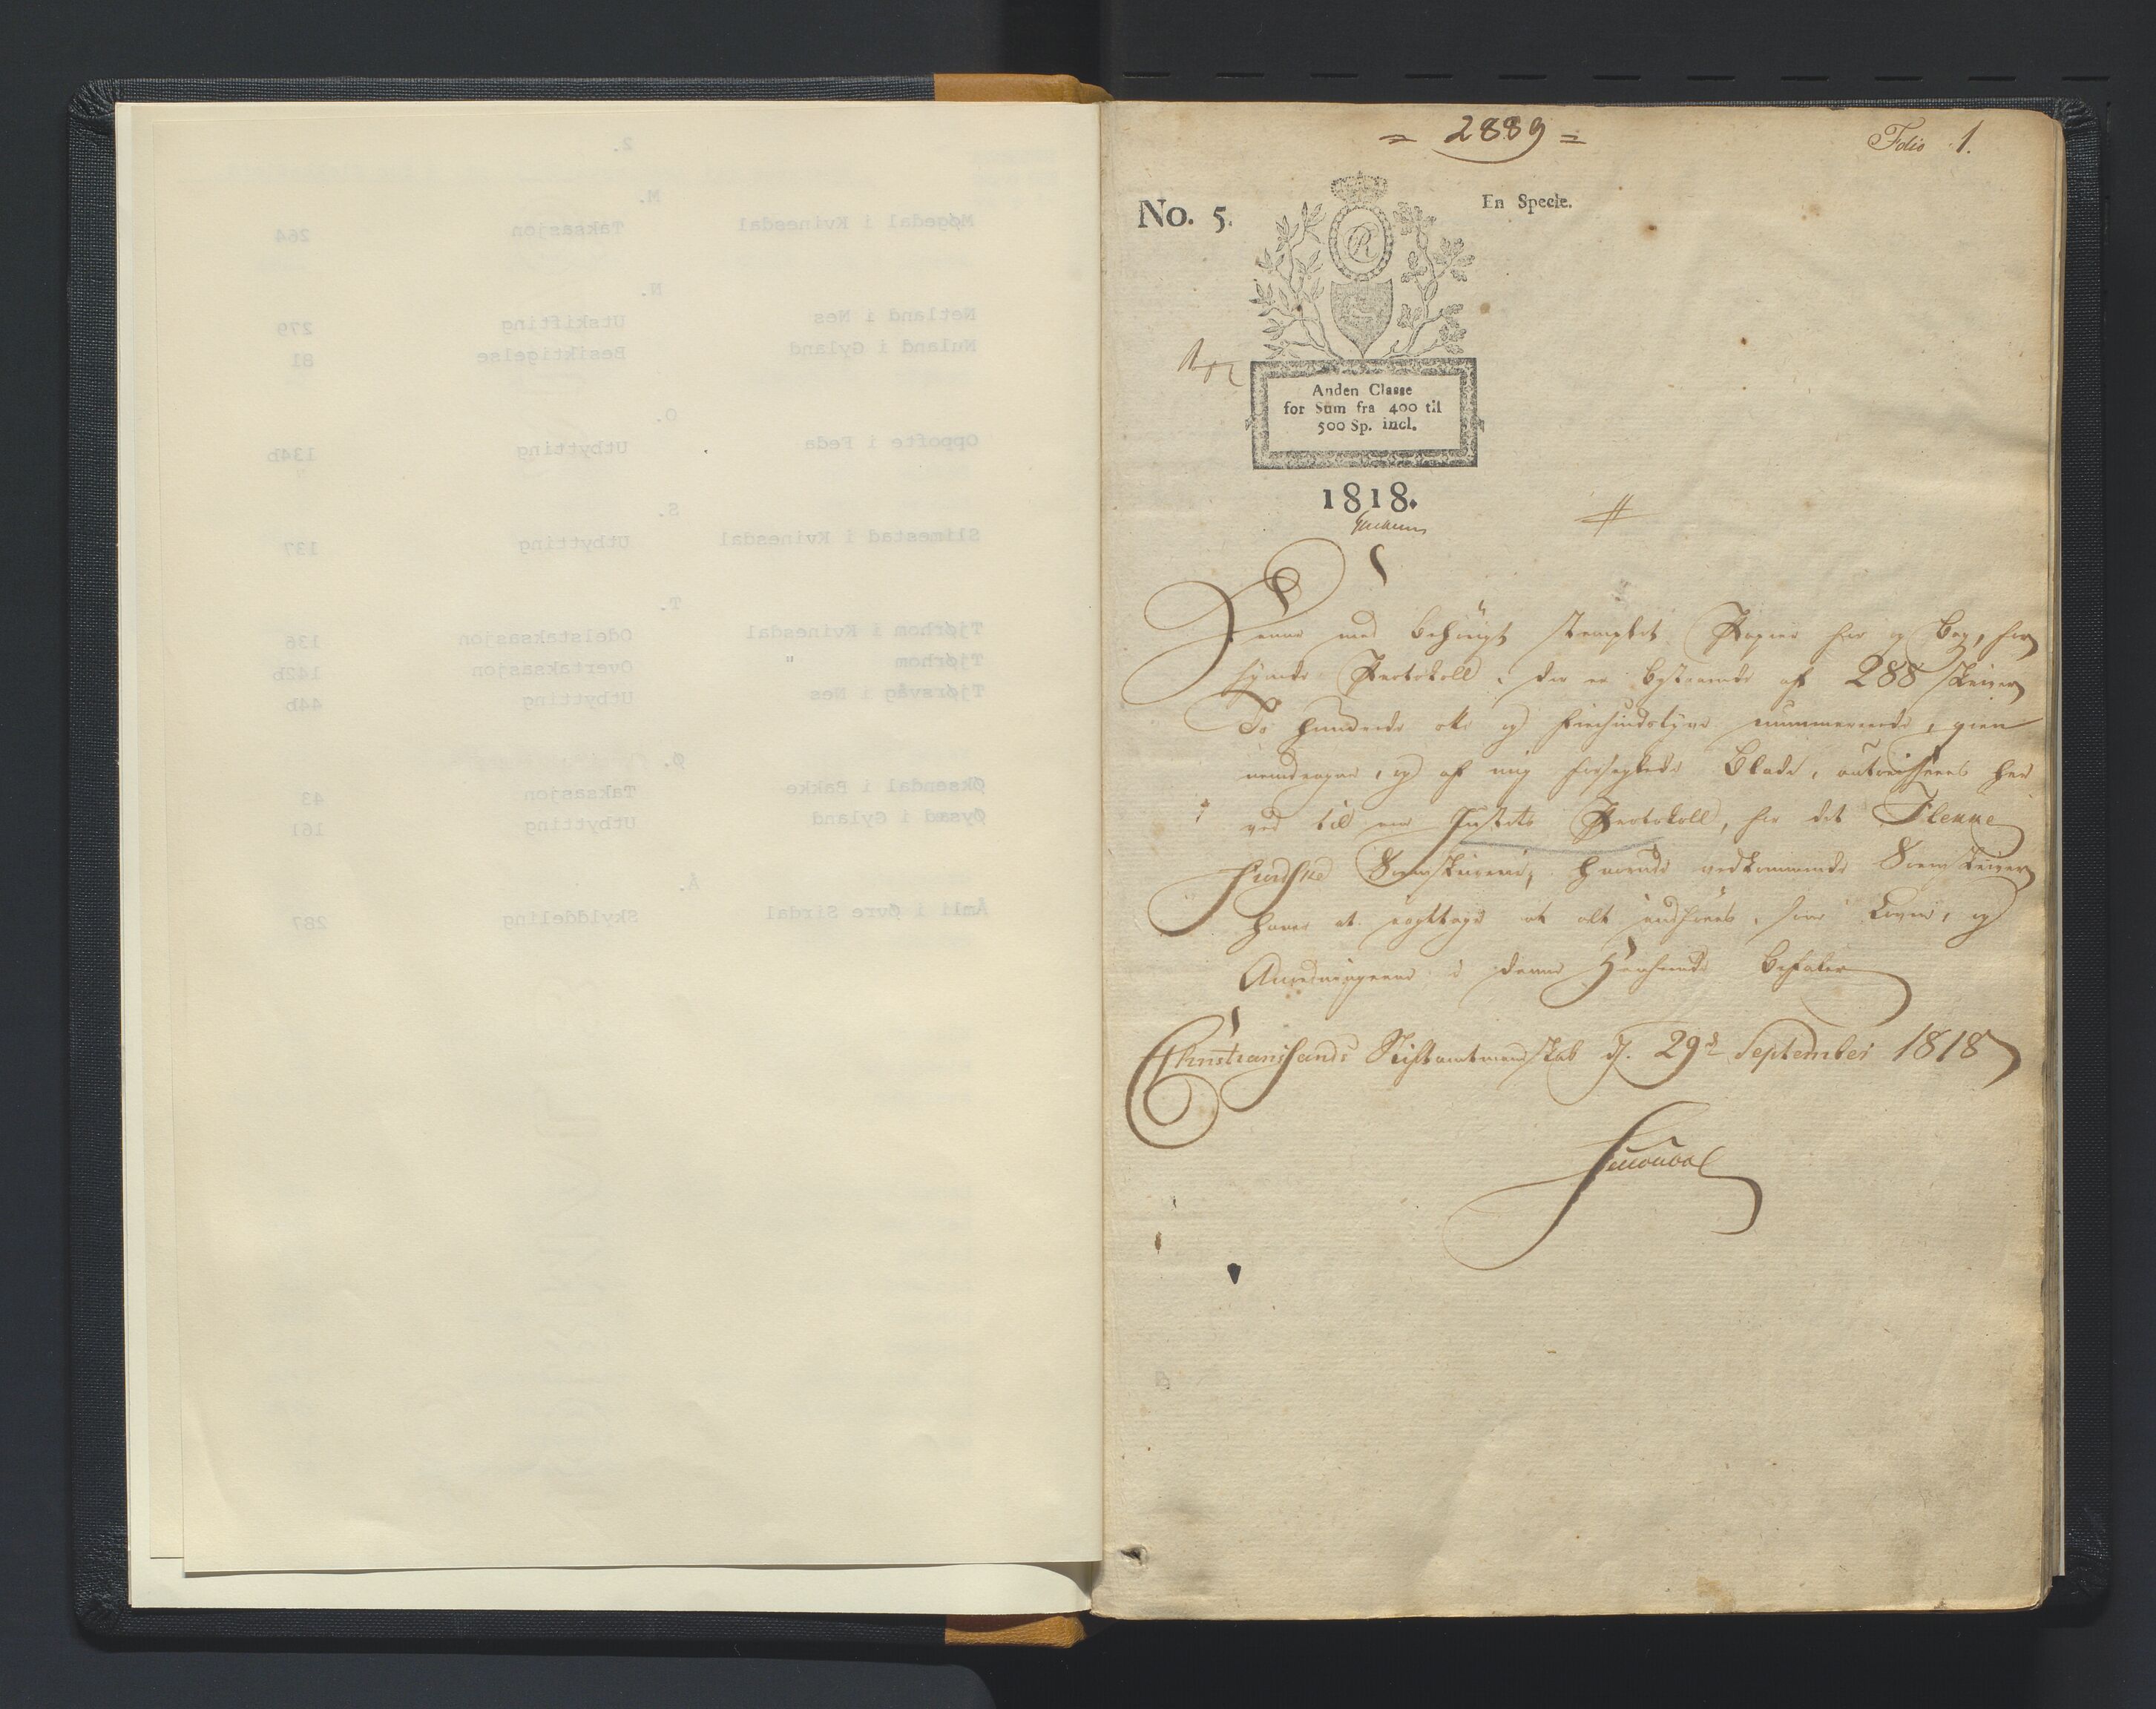 2.
M.
Møgedal i Kvinesdal Taksasjon 264
N.
Netland i Nes Utskifting 279
Nuland i Gyland Besiktigelse 81
O.
Oppofte i Feda Utbytting 134b
S.
Slimestad i Kvinesdal Utbytting 137
T.
Tjørhom i Kvinesdal Odelstaksasjon 136
Tjørhom " Overtaksasjon 142b
Tjørsvåg i Nes Utbytting 44b
Ø.
Øksendal i Bakke Taksasjon 43
Øysæd i Gyland Utbytting 161
Å.
Åmli i Øvre Sirdal Skylddeling 287
= 2889 =
Folio 1.
No. 5.
En Specie.
R
Anden Classe
for Sum fra 400 til
500 Sp. incl.
1818.
Denne med behørigt stemplet Papier
Protokoll, der er bestaaende af 288 skriver
To hundrede otte og Fiirsindstyve nummererede, gien
nemdragne, og af mig forseglede Blade, autoriseres her
ved til en Justits Protokoll, for det Flekke
fiordske Sorenskriverie, hvorved vedkommende Sorenskriver
haver at iagttage at alt indføres, som Loven, og
Anordningerne i denne Henseende befaler
Christiansands Stiftamtmandskab d. 29d September 1818